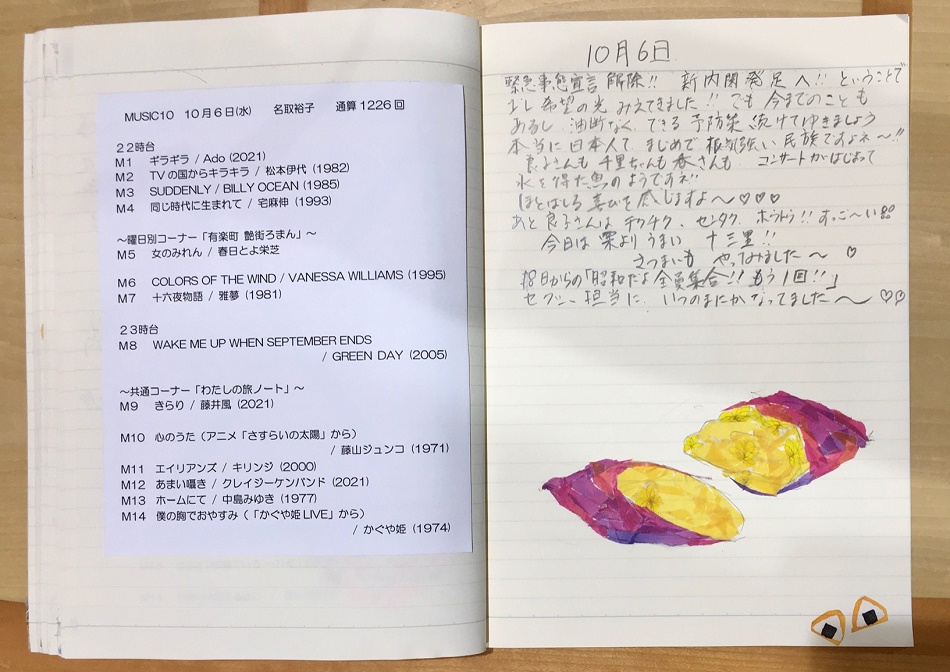 MUSIC10 10月6日(水) 名取裕子 通算1226回
22時台
M1 ギラギラ / Ado (2021)
M2 TVの国からキラキラ / 松本伊代 (1982)
M3 SUDDENLY / BILLY OCEAN (1985)
M4 同じ時代に生まれて / 宅麻伸 (1993)
～曜日別コーナー「有楽町 艶街ろまん」～
M5 女のみれん / 春日とよ栄芝
M6 COLORS OF THE WIND / VANESSA WILLIAMS (1995)
M7 十六夜物語 / 雅夢 (1981)
23時台
M8 WAKE ME UP WHEN SEPTEMBER ENDS
/ GREEN DAY (2005)
～共通コーナー「わたしの旅ノート」～
M9 きらり / 藤井風 (2021)
M10 心のうた（アニメ「さすらいの太陽」から）
/ 藤山ジュンコ (1971)
M11 エイリアンズ / キリンジ (2000)
M12 あまい囁き / クレイジーケンバンド (2021)
M13 ホームにて / 中島みゆき (1977)
M14 僕の胸でおやすみ（「かぐや姫LIVE」から）
/ かぐや姫 (1974)
10月6日
緊急事態宣言 解除!! 新内閣発足へ!! ということで
少し希望の光 みえてきました!! でも 今までのことも
あるし、油断なく できる 予防策 続けてゆきましょう
本当に 日本人て まじめで 根気強い 民族ですよネ～!!
良子さんも 千里ちゃんも 香さんも コンサートがはじまって
水を得た魚のようですネ!!
ほとばしる 喜びを 感じますよ～♡♡♡
あと 良子さんは チクチク、センタク、
今日は 栗より うまい 十三里!!
さつまいも やってみました～ ♡
日からの「昭和だよ 全員集合!! もう1回!!」
担当に いつのまにか なってました～ ♡♡